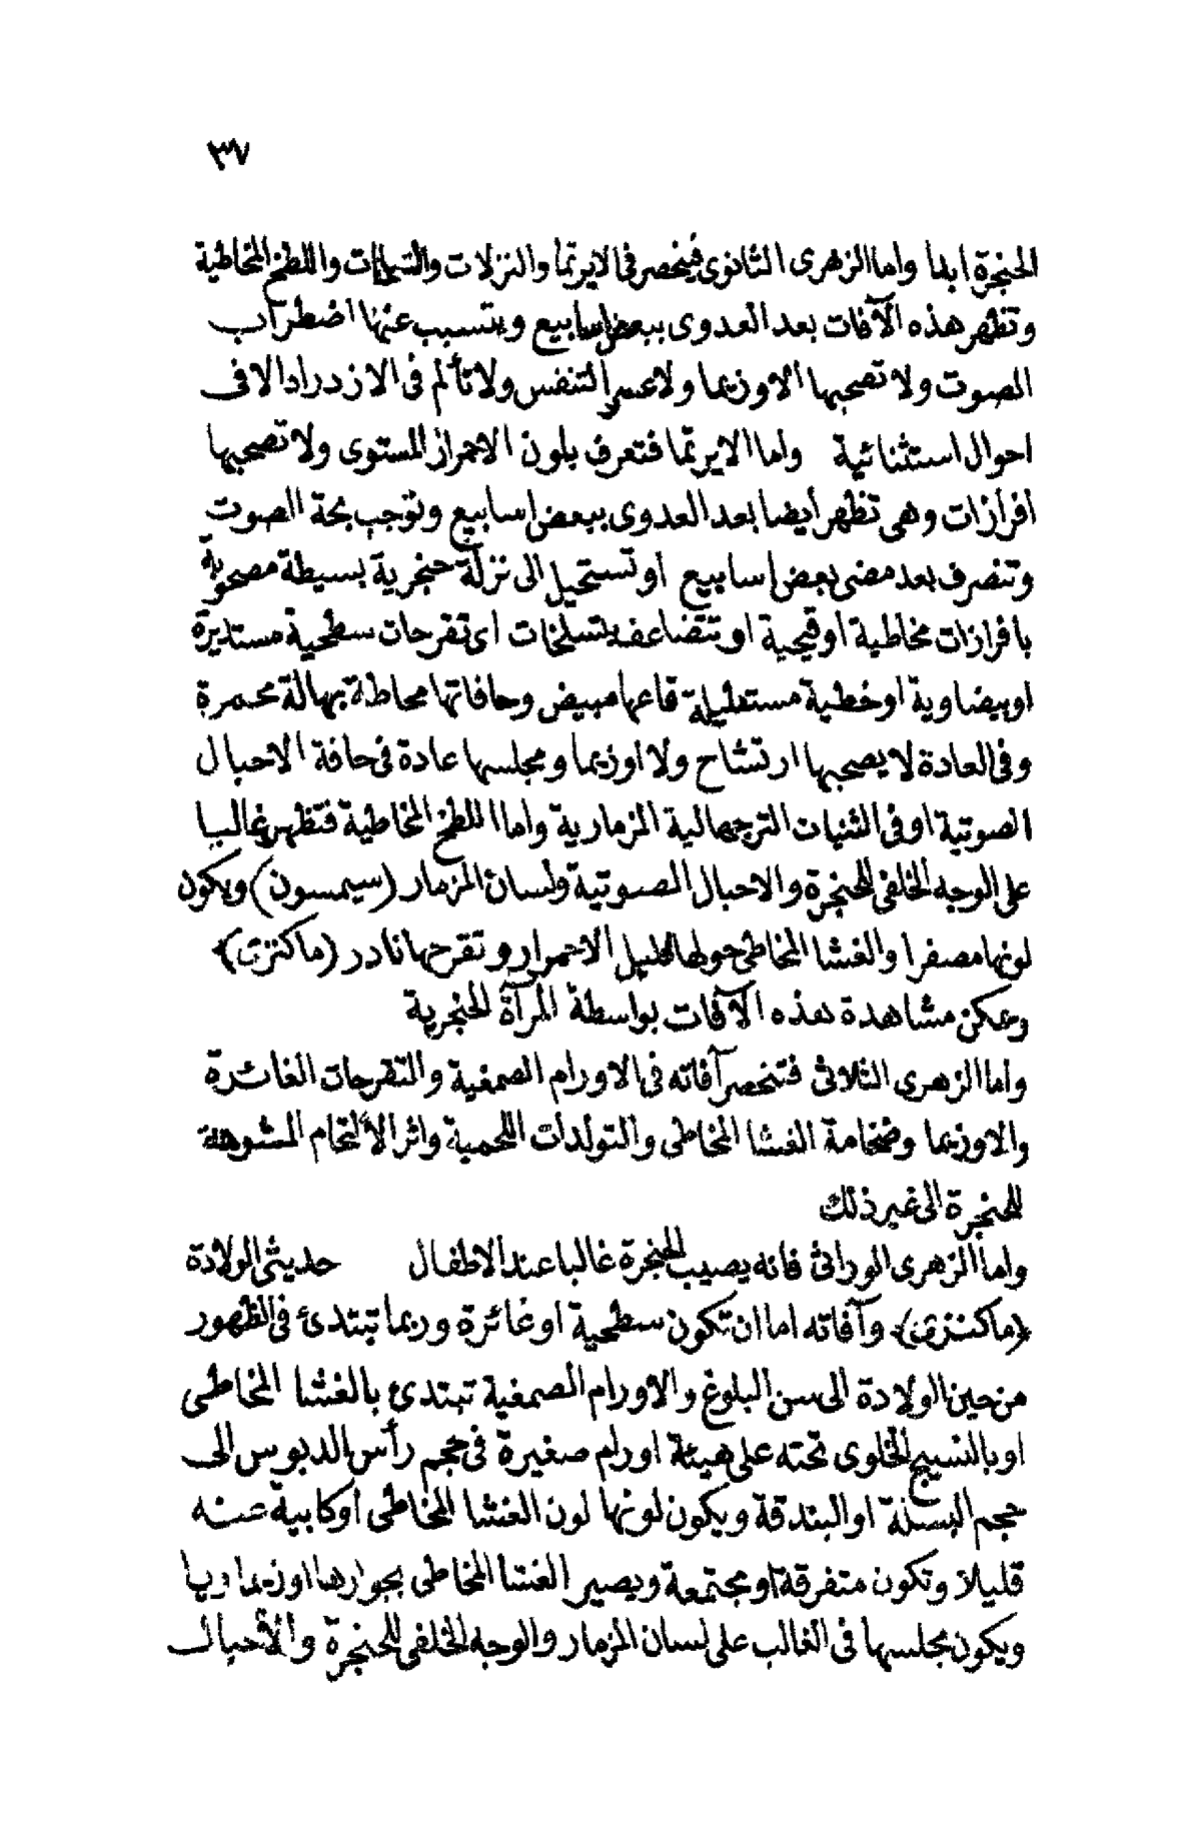 ٣٧
الحنجرة ابدا واما الزهرى الثانوى فينحصر فى الايرتما والنزلات والتسلخات واللطخ المخاطية
وتظهر هذه الآفات بعد العدوى ببعض اسابيع ويتسبب عنها اضطراب
الصوت ولا تصحبها الاوزيما ولا عسر التنفس ولا تألم فى الازدراد الا فى
احوال استثنائية واما الايرتما فتعرف بلون الاحمرار المستوى ولا تصحبها
افرازات وهى تظهر أيضا بعد العدوى ببعض اسابيع وتوجب بحة الصوت
وتنصرف بعد مضى بعض اسابيع او تستحيل الى نزلة حنجرية بسيطة مصحوبة
بافرازات مخاطية او قيحية او تتضاعف بتسلخات اى تقرحات سطحية مستديرة
او بيضاوية او خطية مستطيلة قاعها مبيض وحافاتها محاطة بهالة محمرة
وفى العادة لا يصحبها ارتشاح ولا اوزيما ومجلسها عادة فى حافة الاحبال
الصوتية او فى الثنيات الترجهالية المزمارية واما اللطخ المخاطية فتظهر غالبا
على الوجه الخلفى للحنجرة والاحبال الصوتية ولسان المزمار (سيمسون) ويكون
لونها مصفرا والغشا المخاطى حولها قليل الاحمرار وتقرحها نادر (ماكنزى)
ويمكن مشاهدة هذه الآفات بواسطة المرآة الحنجرية
واما الزهرى الثلاثى فتنحصر آفاته فى الاورام الصمغية والتقرحات الغائرة
والاوزيما وضخامة الغشا المخاطى والتولدات اللحمية واثر الألتحام المشوهة
للحنجرة الى غير ذلك
واما الزهرى الوراثى فانه يصيب الحنجرة غالبا عند الاطفال حديثى الولادة
(ماكنزى) وآفاته اما ان تكون سطحية او غائرة وربما تبتدئ فى الظهور
من حين الولادة الى سن البلوغ والاورام الصمغية تبتدئ بالغشا المخاطى
او بالنسيج الخلوى تحته على هيئة اورام صغيرة فى حجم رأس الدبوس الى
حجم البسلة او البندقة ويكون لونها لون الغشا المخاطى او كابية عنه
قليلا وتكون متفرقة او مجتمعة ويصير الغشا المخاطى بجوارها اوزيماويا
ويكون مجلسها فى الغالب على لسان المزمار والوجه الخلفى للحنجرة والأحبال